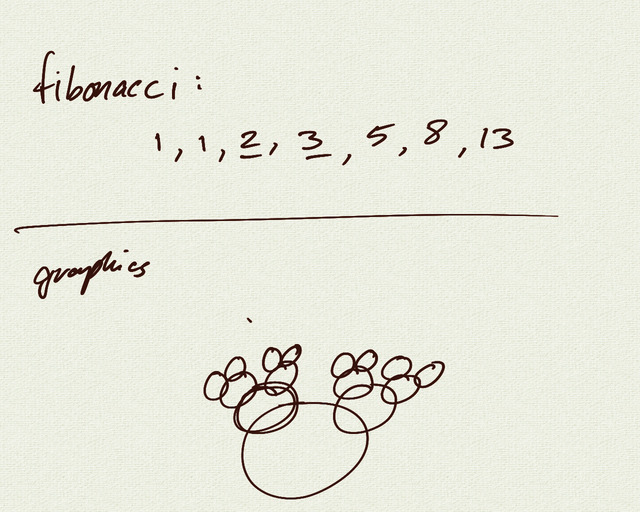 fibonacci:
1, 1, 2, 3, 5, 8, 13
graphics